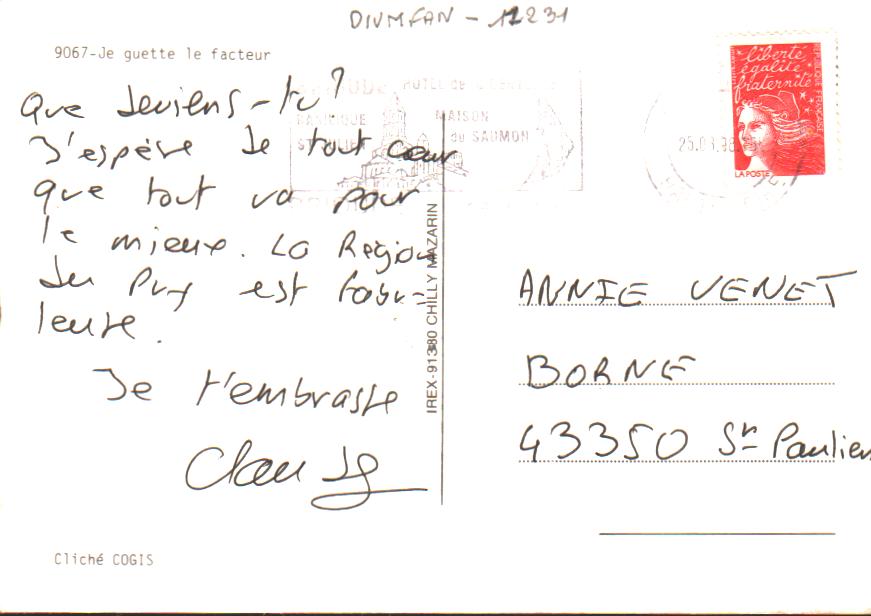 DIVMFAN - 12231
9067-Je guette le facteur
Que deviens-tu?
J'espère de tout cœur
que tout va pour
le mieux. La Région
du Puy est fabu-
leuse.
Je t'embrasse
Claude
Cliché COGIS
IREX-91380 CHILLY MAZARIN
HOTEL de la
BASILIQUE
ST JULIEN
MAISON
du SAUMON
25.0
.98
liberté
égalité
fraternité
RÉPUBLIQUE FRANÇAISE
LA POSTE
ANNIE VENET
BORNE
43350 St Paulien